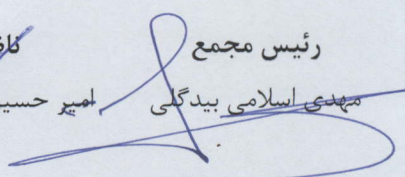 رئیس مجمع
مهدی اسلامی بیدگلی امیر